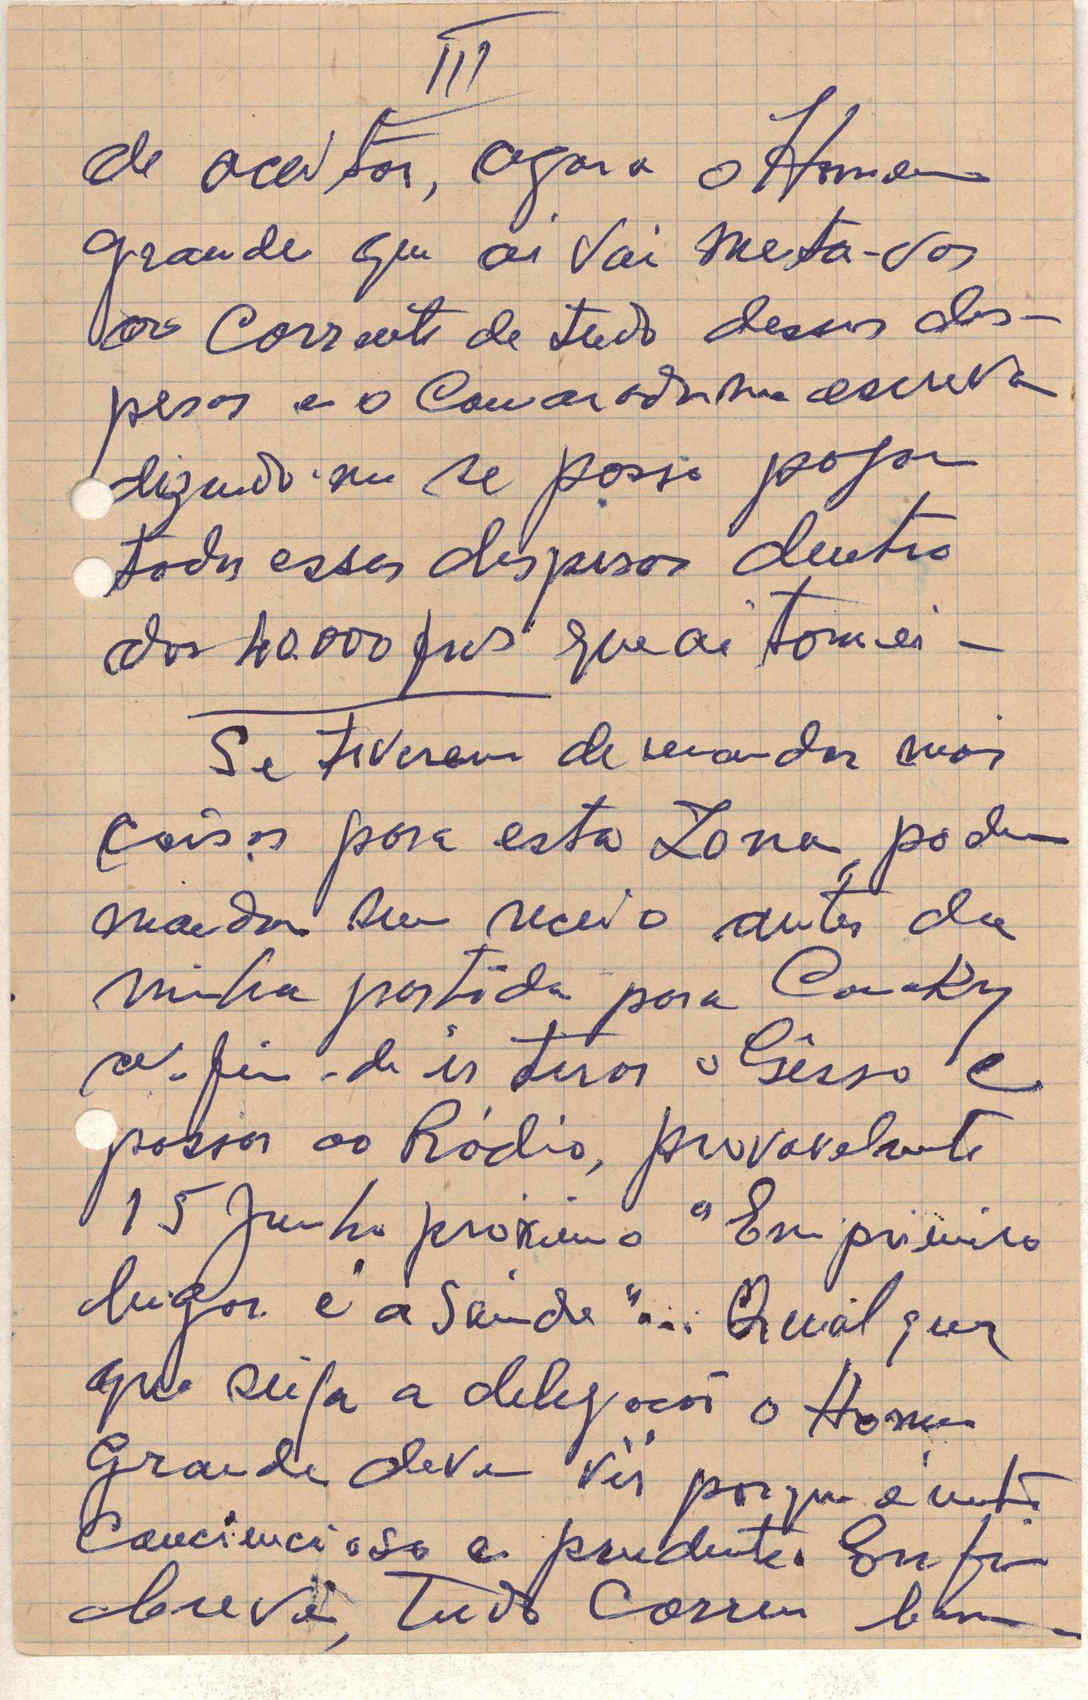 III
de aceitar, agora o Homem
grande que ai vai meta-vos
ao Corrente de tudo dessas des-
pesas e o Camaradinha escreva
dizendo-me se posso pagar
todas essas despesas dentro
dos 40.000 frs que ai tomei -
Se tiverem de mandar mais
coisas para esta Zona, podem
mandar sem receio antes da
minha partida para Conakry
a-fim-de ir tirar o Gêsso e
passar ao Rádio, provavelmente
15 Junho próximo "Em primeiro
lugar é a Saúde"... Qualquer
que seija a delegação o Homem
Grande deve vir porque é muito
Consciencioso e prudente. Em fim
breve, Tudo Correu bem -